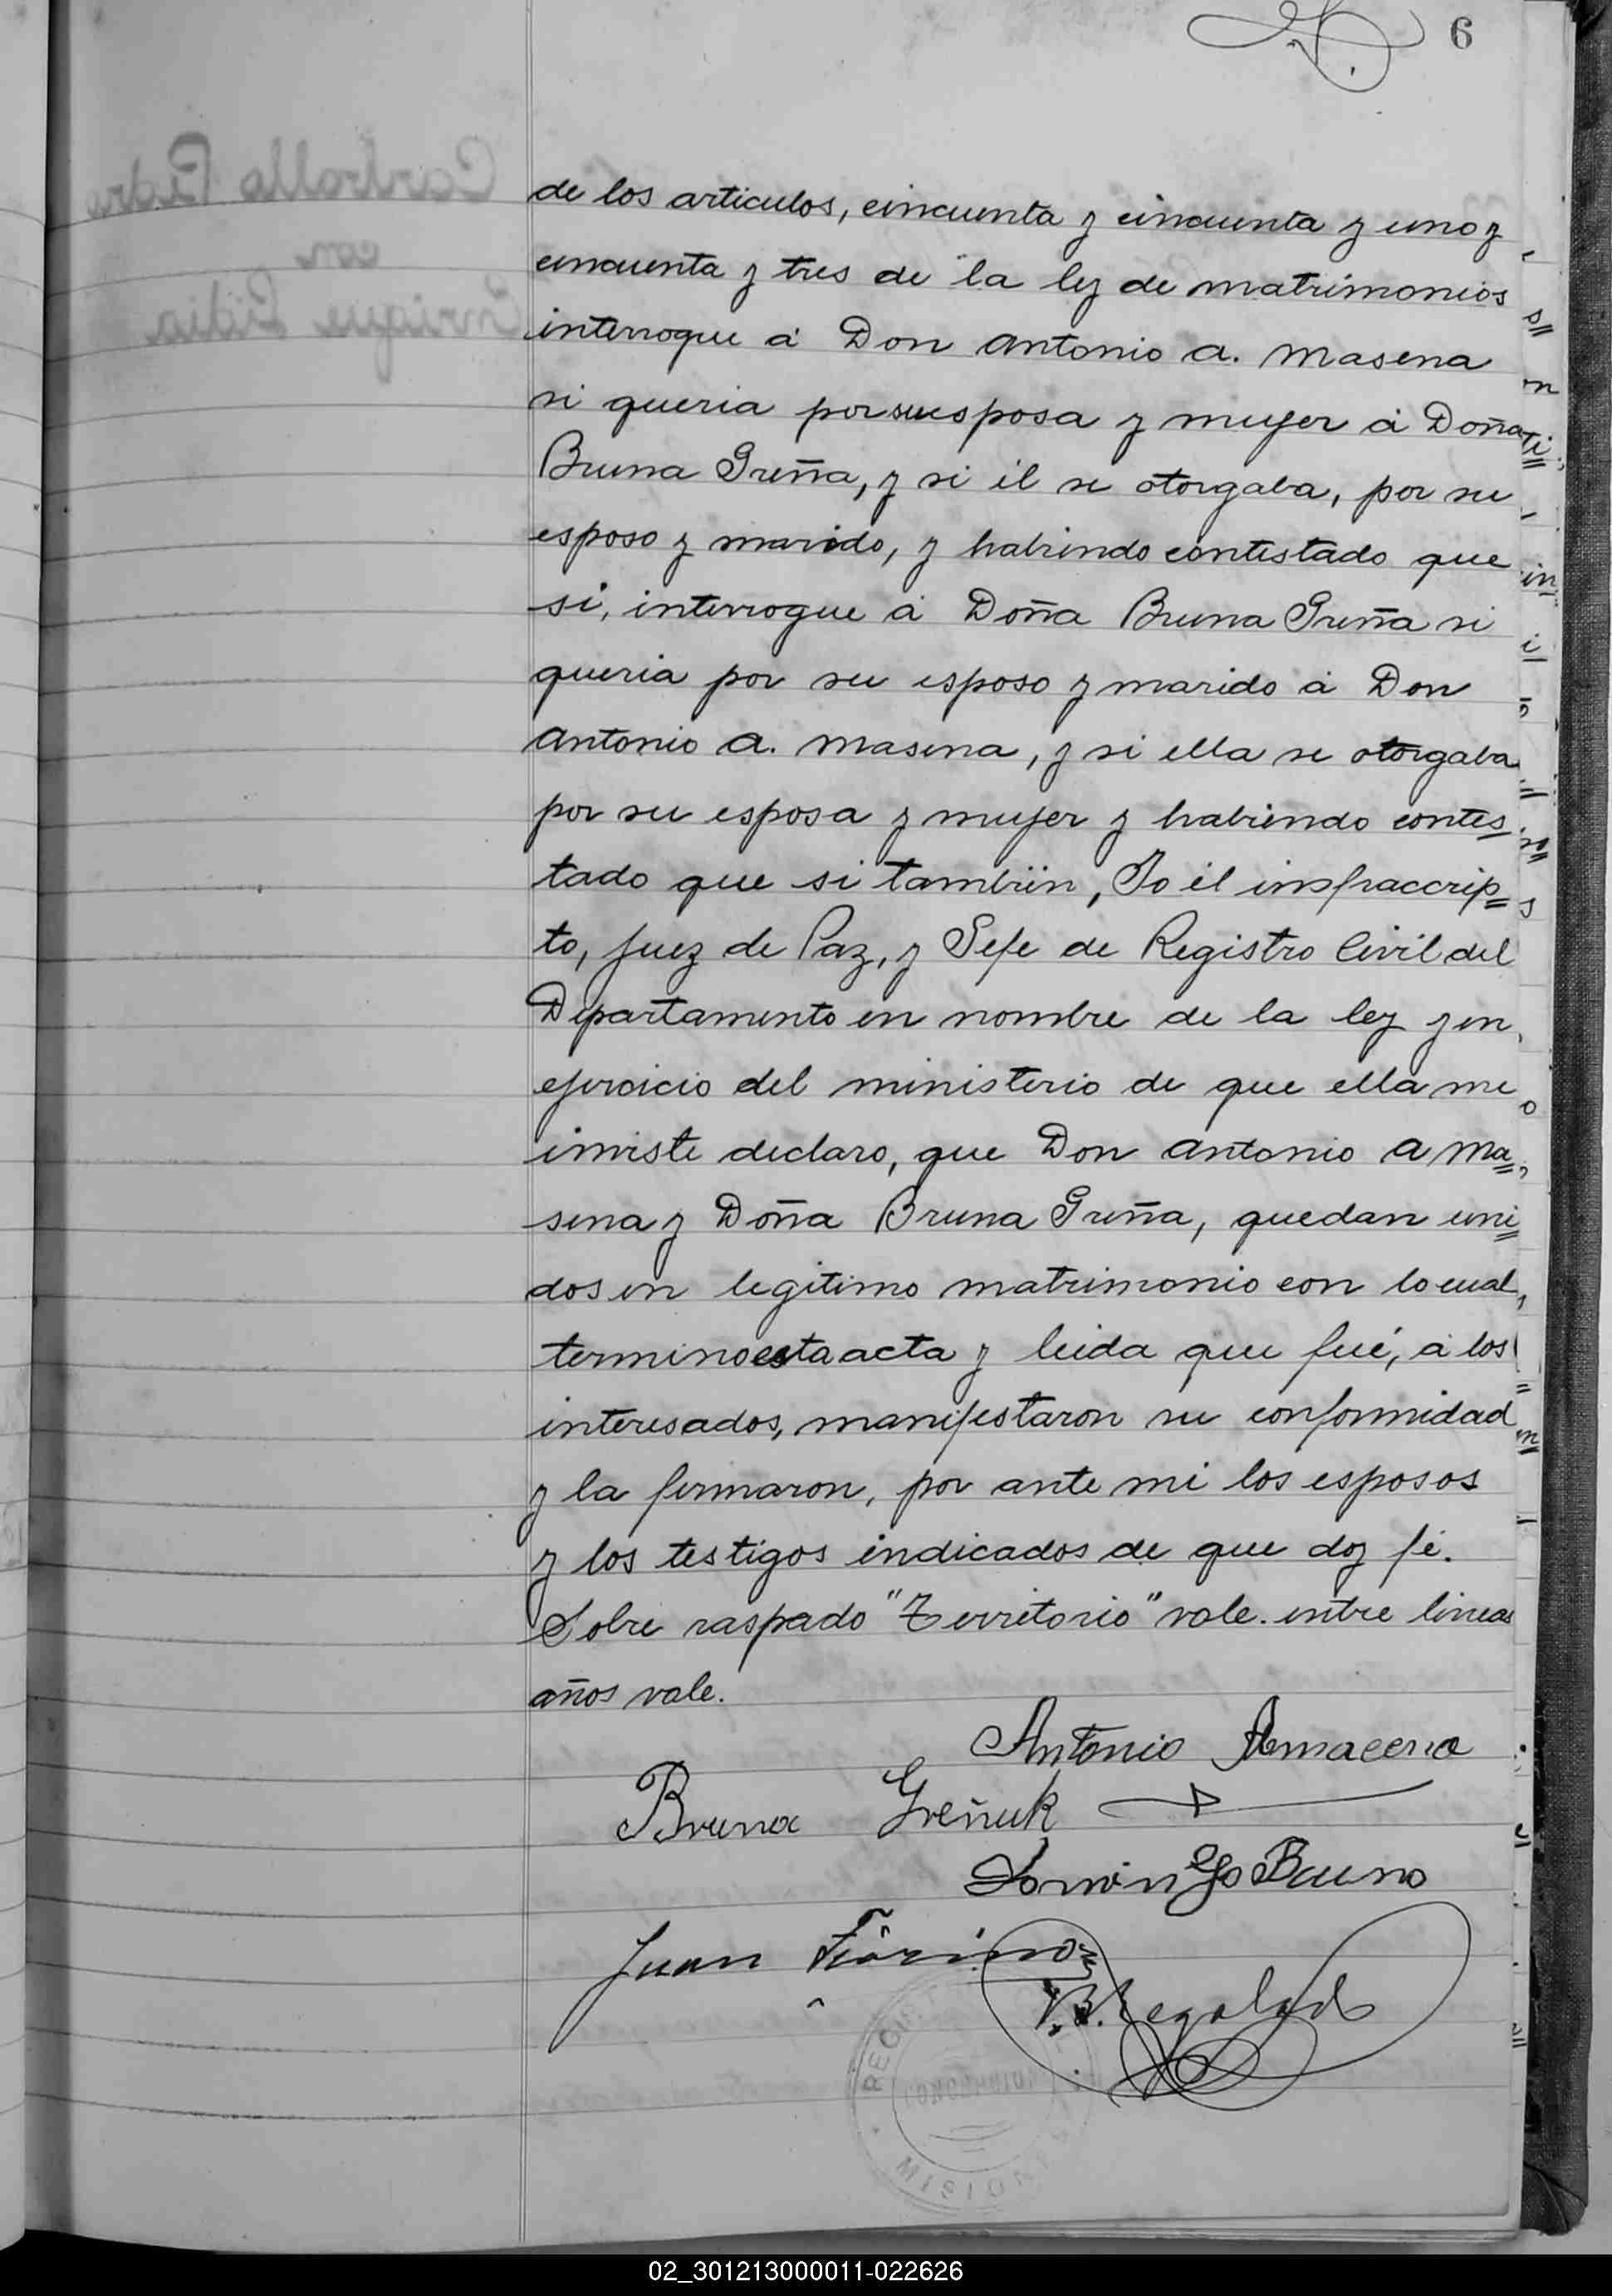 6
de los articulos, cincuenta y cincuenta y uno y
cincuenta y tres de la ley de matrimonios
interrogue á Don Antonio A. Masena
si queria por su esposa y mujer á Doña
Bruna Greña, y si él se otorgaba, por su
esposo y marido, y habiendo contestado que
si, interrogue á Doña Bruna Greña si
queria por su esposo y marido á Don
Antonio A. Masena, y si ella se otorgaba
por su esposa y mujer y habiendo contes
tado que si tambiën, Yo él insfraccrip=
to, Juez de Paz, y Gefe de Registro Civil del
Departamento en nombre de la ley y en
ejercicio del ministerio de que ella me
inviste declaro, que Don Antonio A Ma=
sena y Doña Bruna Greña, quedan uni=
dos en legitimo matrimonio con lo cual,
termino esta acta y leida que fué, á los
interesados, manifestaron su conformidad
y la firmaron, por ante mi los esposos
y los testigos indicados de que doy fé.
Sobre raspado "Territorio" vale. entre lineas
años vale.
Antonio Amacena
Bruna Greñuk
Domingo Bueno
Juan
MISIONES
02_301213000011-022626